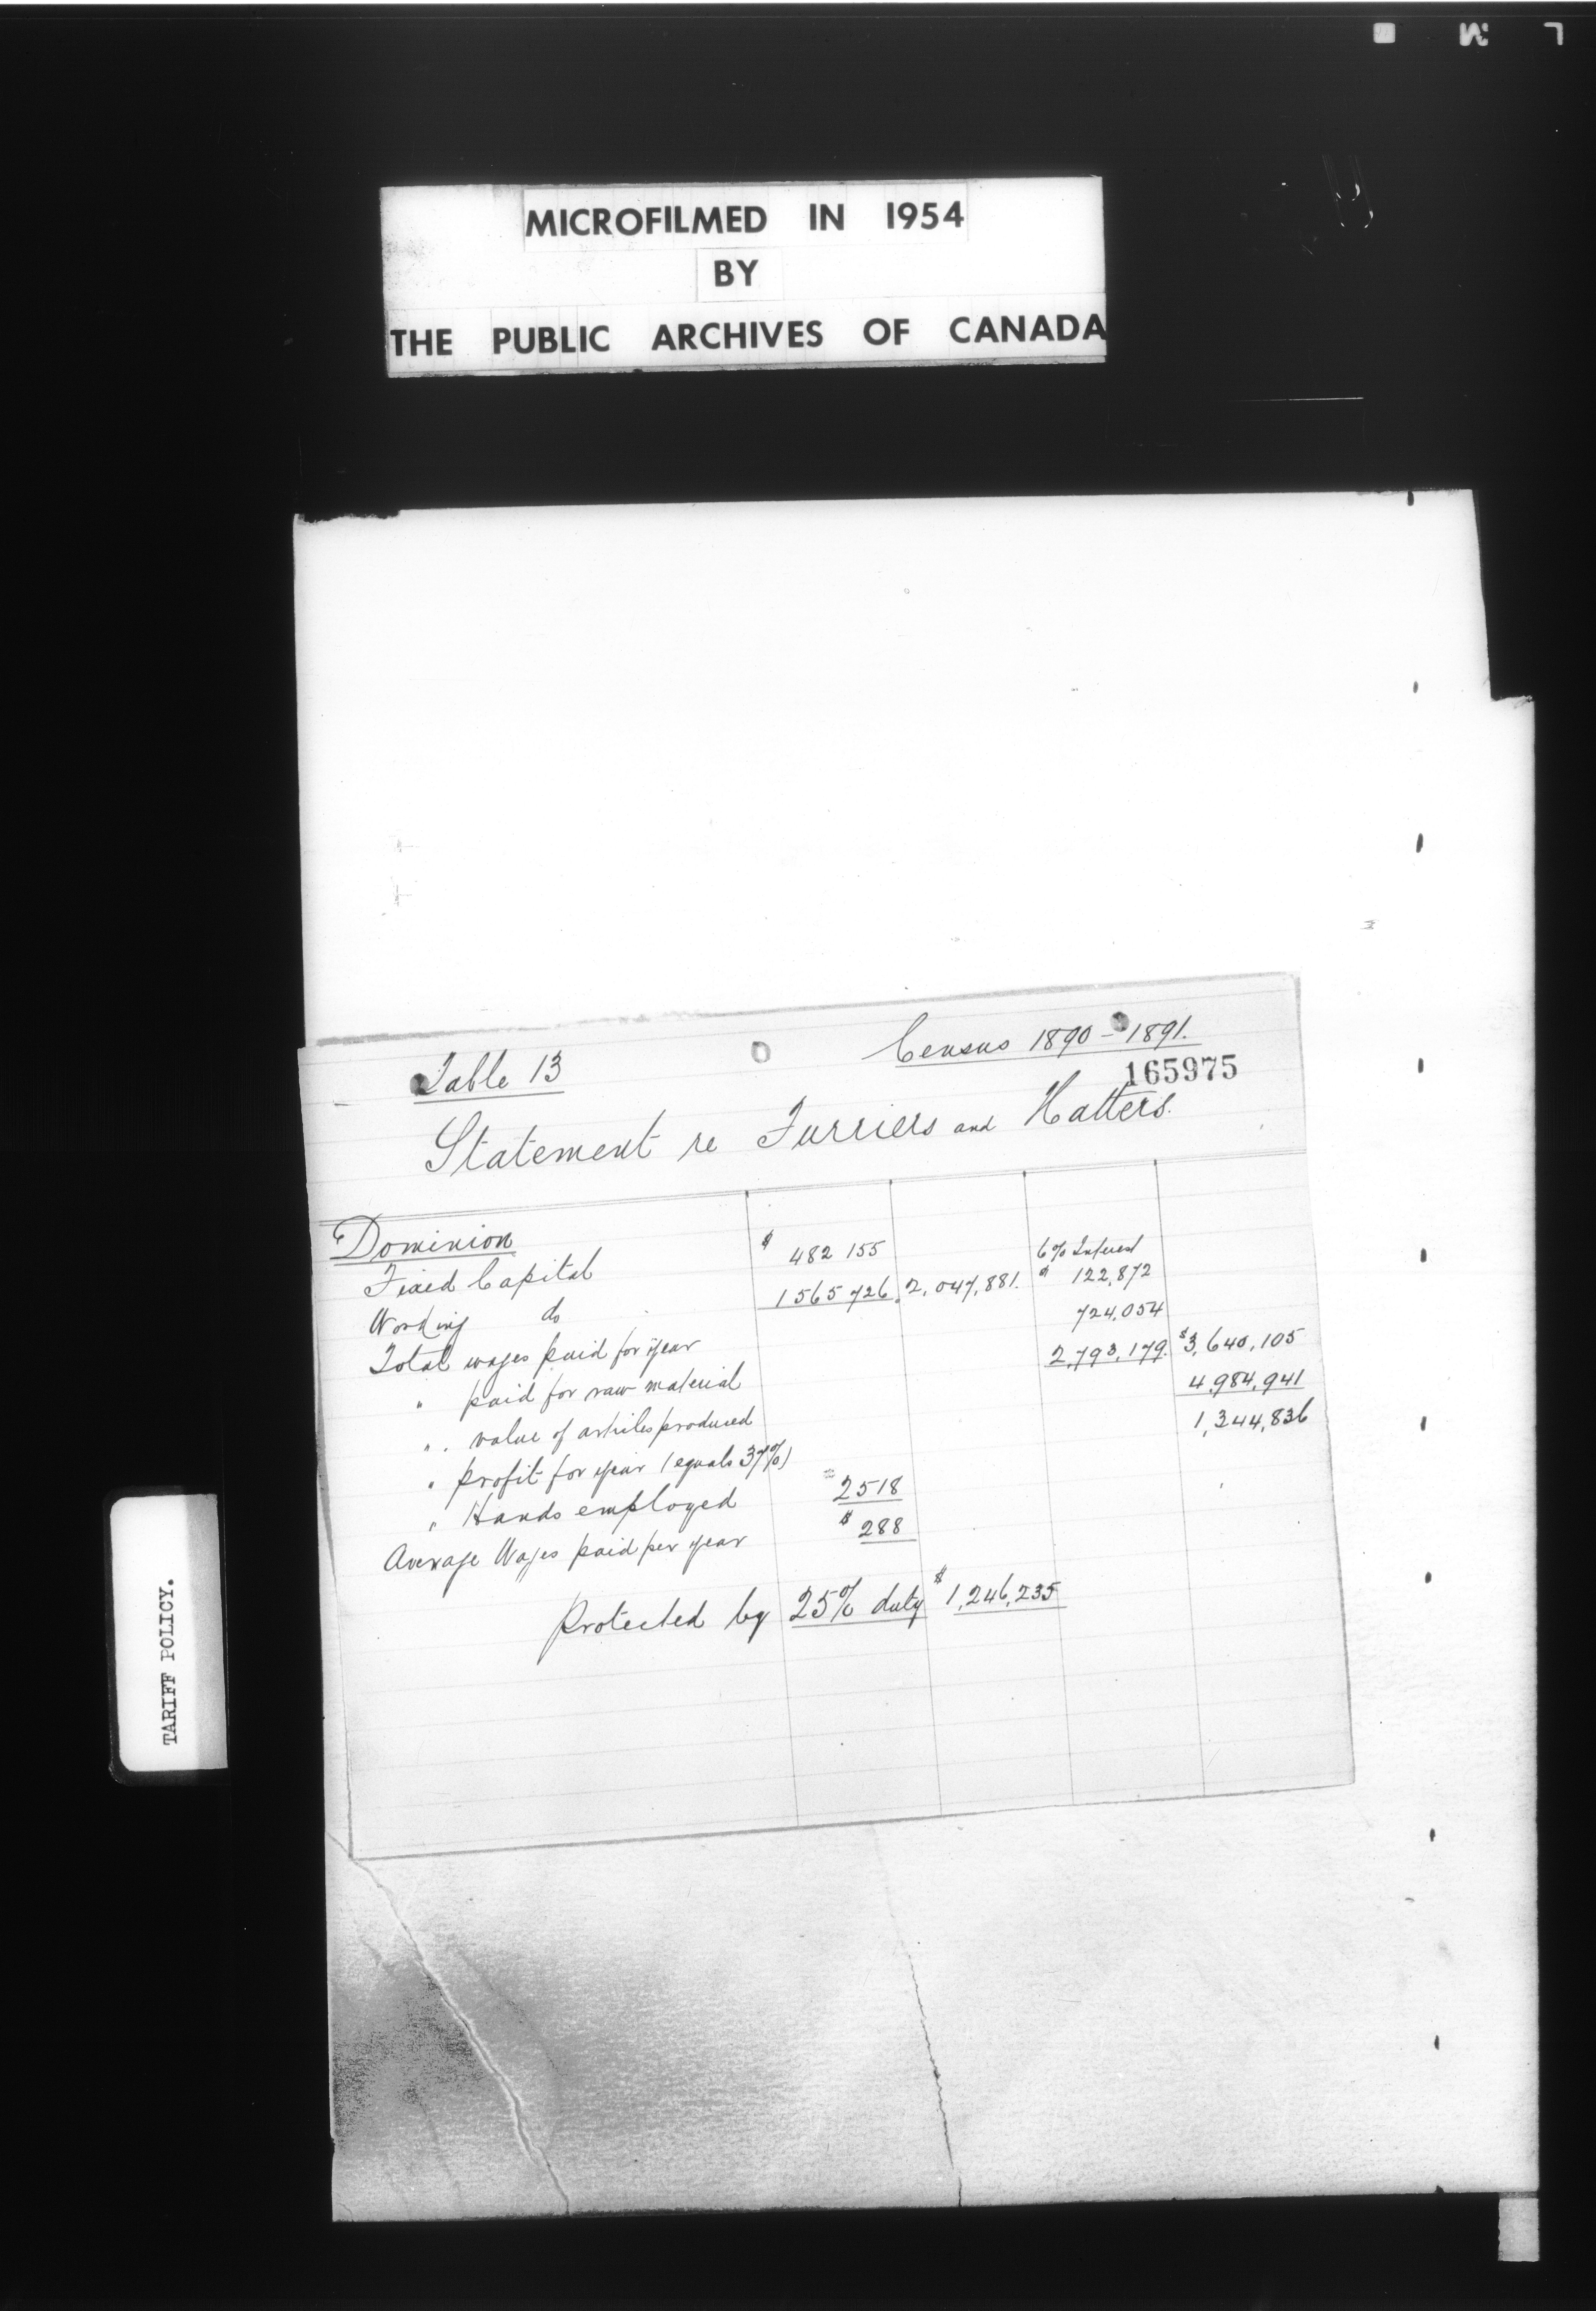 MICROFILMED IN 1954
BY
THE PUBLIC ARCHIVES OF CANADA
Table 13
Census 1890 - 1891.
165975
Statement re Furriers and Hatters.
Dominion
Fixed Capital $ 482 155 6% Interest
Working do 1 565 726. 2,047,881. $ 122,872
Total wages paid for year 724,054
" paid for raw material 2,793,179. $3,640,105
" value of articles produced 4,984,941
" profit for year (equals 37%) 1,344,836
" Hands employed 2518
Average Wages paid per year $ 288
Protected by 25% duty $ 1,246,235
TARIFF POLICY.